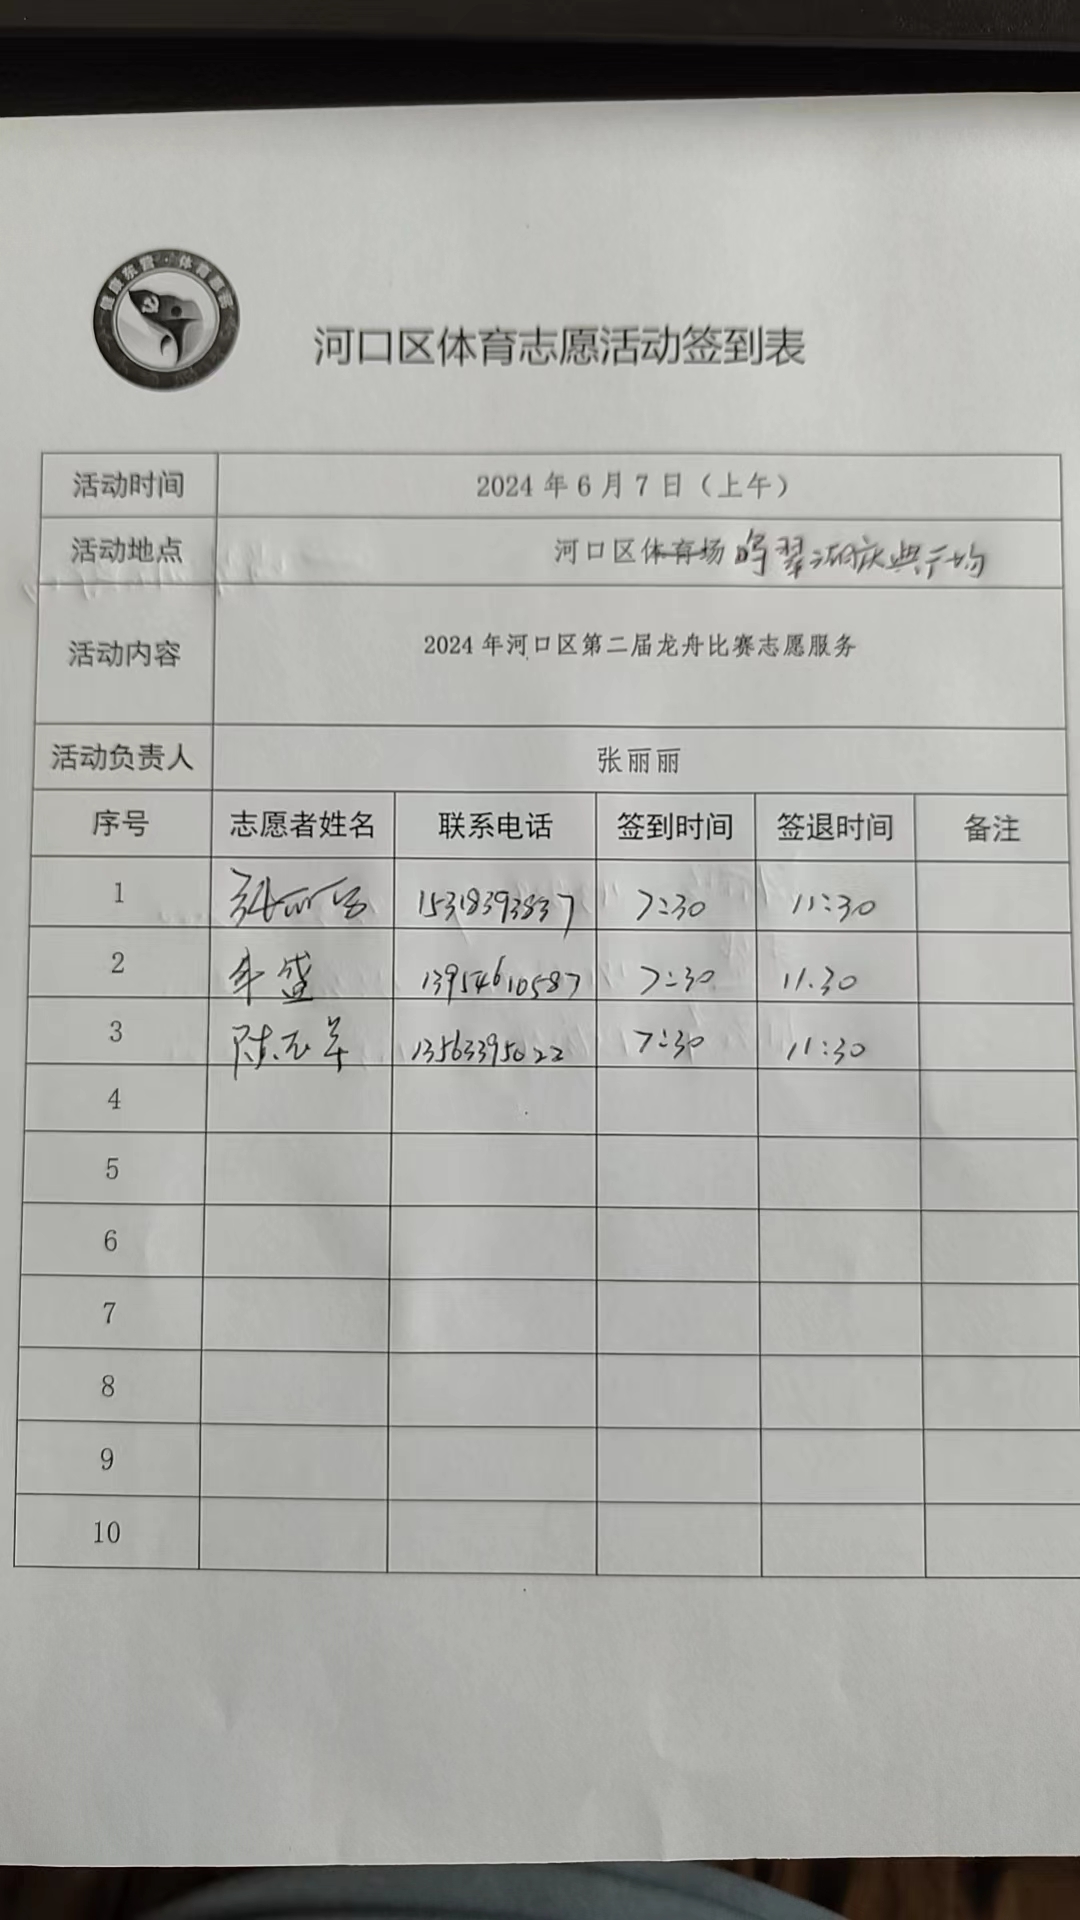 健康东营·体育惠客
河口区体育志愿活动签到表
活动时间 2024 年 6 月 7 日（上午）
活动地点 河口区体育场 鸣翠湖庆典广场
活动内容 2024 年河口区第二届龙舟比赛志愿服务
活动负责人 张丽丽
序号 志愿者姓名 联系电话 签到时间 签退时间 备注
1 15318393837 7:30 11:30
2 牟盛 13954610587 7:30 11.30
3 陈 军 13563395022 7:30 11:30
4
5
6
7
8
9
10